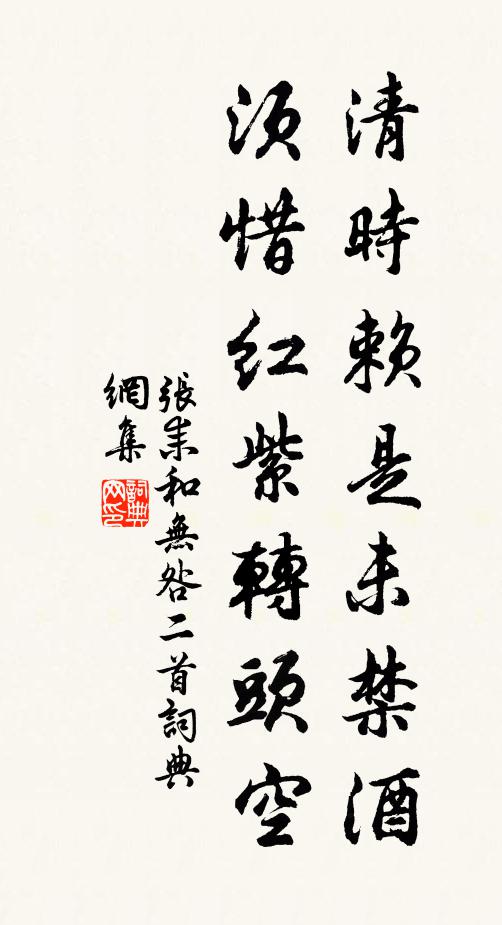 清時賴是未禁酒
須惜紅紫轉頭空
張耒和無咎二首詞典
網集
詞典
网印